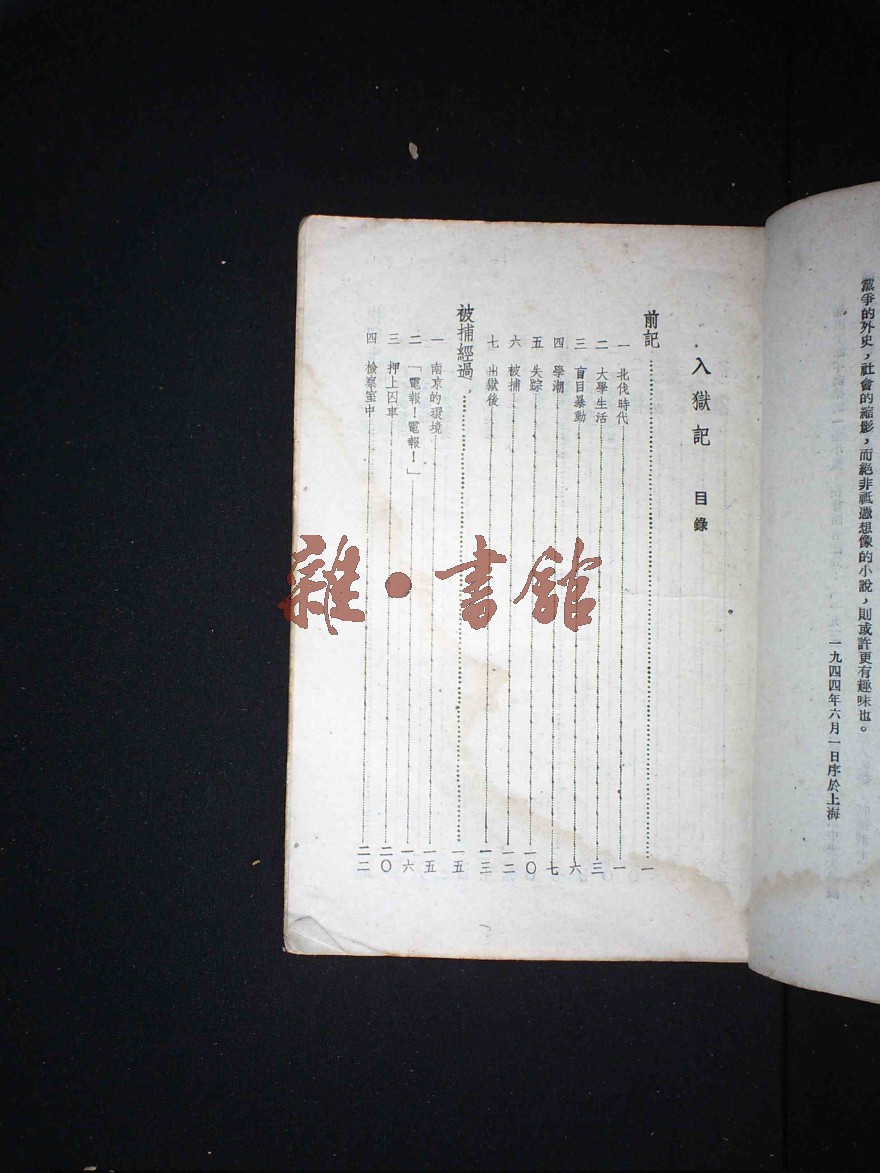 黨爭的外史，社會的縮影，而絕非祗憑想像的小說，則或許更有趣味也。
一九四四年六月一日序於上海
入獄記　目錄
前記……一
一　北伐時代……一
二　大學生活……三
三　盲目暴動……六
四　學潮……七
五　失踪……一〇
六　被捕……一二
七　出獄後……一三
被捕經過……一五
一　南京的環境……一五
二　「電報！電報！」……一六
三　押上囚車……二〇
四　檢察室中……二二
雜·書館